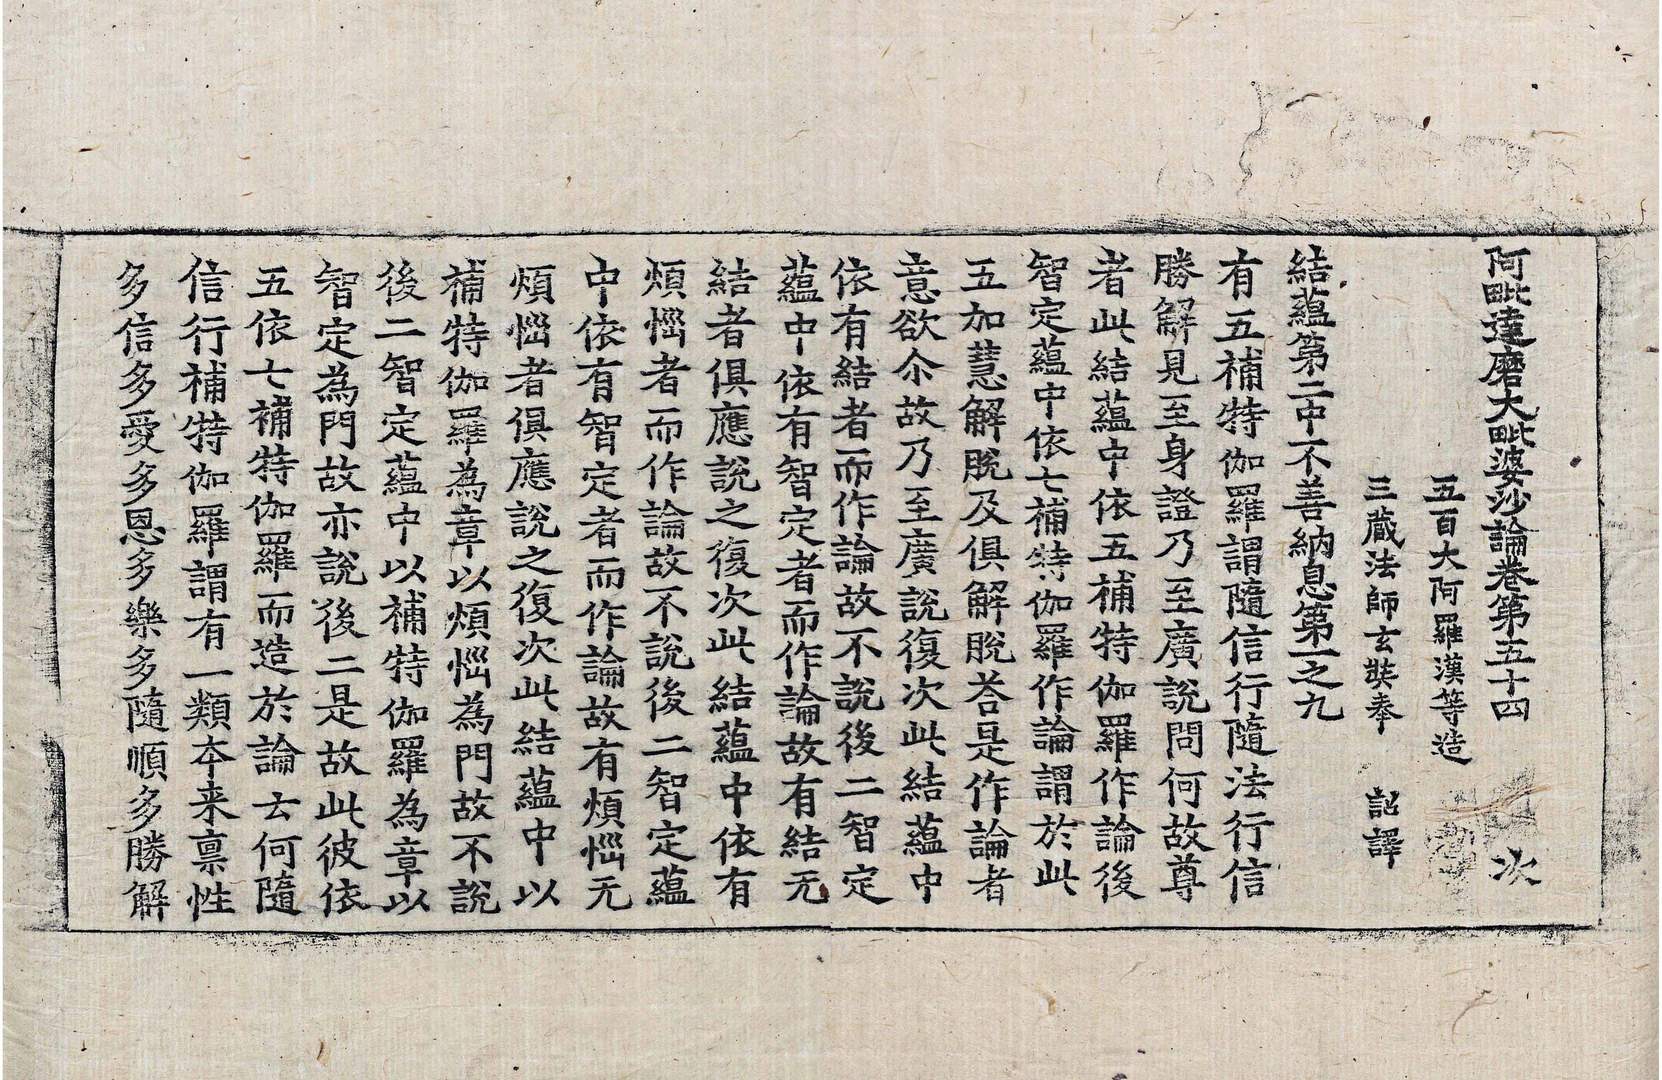 阿毗達磨大毗婆沙論卷第五十四 次
五百大阿羅漢等造
三藏法師玄奘奉 詔譯
結蘊第二中不善納息第一之九
有五補特伽羅謂隨信行隨法行信
勝解見至身證乃至廣說問何故尊
者此結蘊中依五補特伽羅作論後
智定蘊中依七補特伽羅作論謂於此
五加慧解脫及俱解脫荅是作論者
意欲尒故乃至廣說復次此結蘊中
依有結者而作論故不說後二智定
蘊中依有智定者而作論故有結无
結者俱應說之復次此結蘊中依有
煩惱者而作論故不說後二智定蘊
中依有智定者而作論故有煩惱无
煩惱者俱應說之復次此結蘊中以
補特伽羅為章以煩惱為門故不說
後二智定蘊中以補特伽羅為章以
智定為門故亦說後二是故此彼依
五依七補特伽羅而造於論云何隨
信行補特伽羅謂有一類本来禀性
多信多愛多恩多樂多隨順多勝解